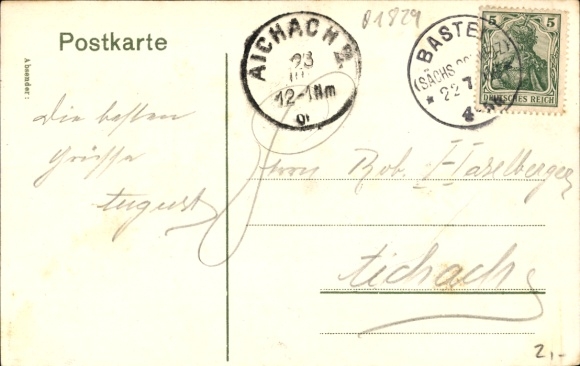 Postkarte
Absender:
01829
AICHACH 2.
23
III
12-1Nm
BASTEI
(SÄCHS.
22
4-5
5 5
DEUTSCHES REICH
Die besten
Grüsse
August
Herrn Rob. Haselberger
Aichach
2,-